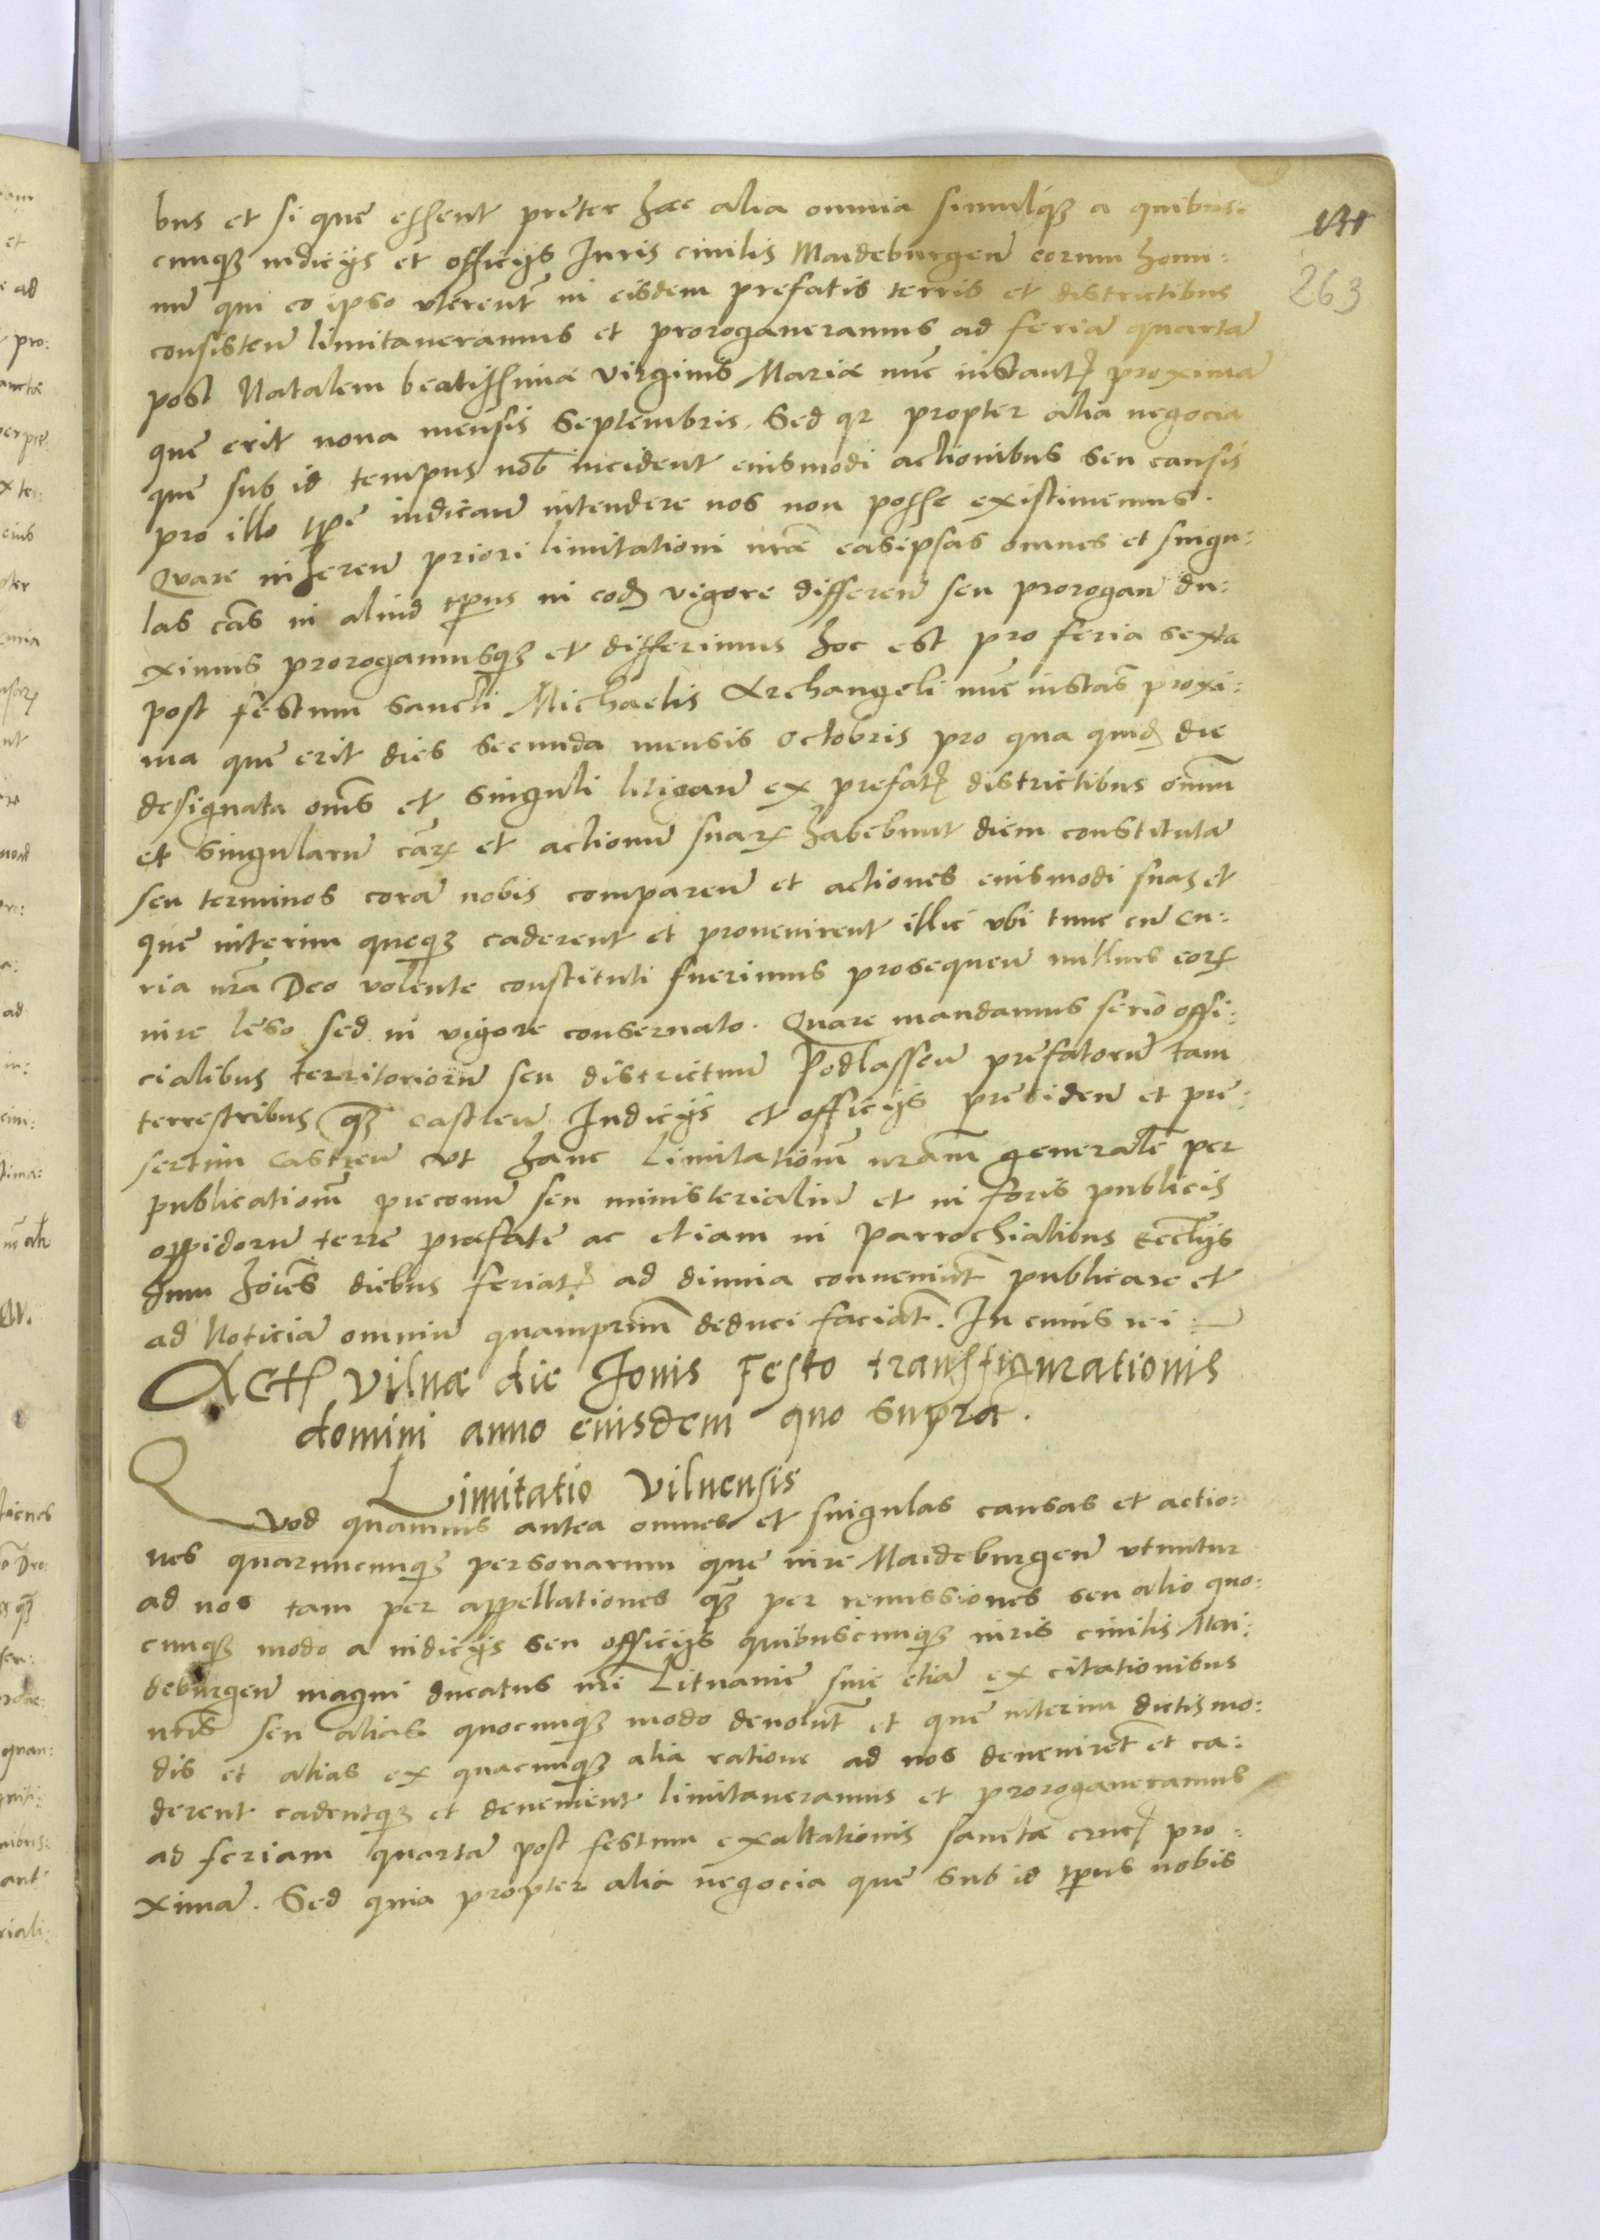 bus et si que essent preter hac alia omnia simulq3 a quibus:
cunq3 iudicijs et officijs Iuris ciuilis Maideburgen̄ eorum homi:
nū qui eo ipso vterent̄ in eisdem prefatis terris et districtibus
consisten̄ limitaueramus et prorogaueramus ad feriā quartā
post Natalem beatissimæ virginis Mariæ nūc instant̄ proximā
que erit nona mensis Septembris. Sed qr propter alia negocia
que sub id tempus nob̄ incident eiusmodi actionibus seu causis
pro illo tp̄e iudican̄ intendere nos non posse existimemus.
Quare inheren̄ priori limitationi nr̄æ easipsas omnes et singu:
las cās in aliud tp̄us in eod̄ vigore differen̄ seu prorogan̄ du:
ximus prorogamusq3 et differimus hoc est pro feria sexta
post festum Sancti Michaelis Archangeli nūc instan̄s proxi:
ma que erit dies secunda mensis Octobris pro qua quid̄ die
designata om̄s et singuli litigan̄ ex prefat̄ districtibus om̄iū
et singularū cār̄ et actionū suar̄ habebunt diem constitutā
seu terminos corā nobis comparen̄ et actiones eiusmodi suas et
que interim queq3 caderent et prouenirent illic vbi tunc cū cu:
ria nr̄a Deo volente constituti fuerimus prosequen̄ nullius eor̄
iure leso sed in vigore conseruato. Quare mandamus serio offi:
cialibus territoriorū seu districtuū Podlassen̄ prefatorū tam
terrestribus q̄3 castren̄ Iudicijs et officijs presiden̄ et pre:
sertim Castren̄ vt hanc limitationē nrām generalē per
publicationē preconū seu ministerialiū et in foris publicis
oppidorū terre præfate ac etiam in parrochialibus Eccl̄ijs
dum hōies diebus feriat̄ ad diuina conueniūt publicare et
ad Noticiā omniū quamprimū deduci faciāt. In cuius rei
Act̄ Vilnæ die Iouis Festo transfigurationis
domini anno eiusdem quo supra.
Limitatio Vilnensis
Quod quamuis antea omnes et singulas causas et actio:
nes quarumcunq3 personarum que iure Maideburgen̄ vtuntur
ad nos tam per appellationes q̄3 per remissiones seu alio quo:
cunq3 modo a iudicijs seu officijs quibuscunq3 iuris ciuilis Mai:
deburgen̄ magni ducatus nr̄i Lituanie siue etiā ex citationibus
nr̄is seu alias quocunq3 modo deuolūt et que interim dictis mo:
dis et alias ex quacunq3 alia ratione ad nos deuenirēt et ca:
derent cadentq3 et deuenient limitaueramus et prorogaueramus
ad feriam quartā post festum exaltationis sanctæ cruc̄ pro:
ximā. Sed quia propter alia negocia que sub id tp̄us nobis
263